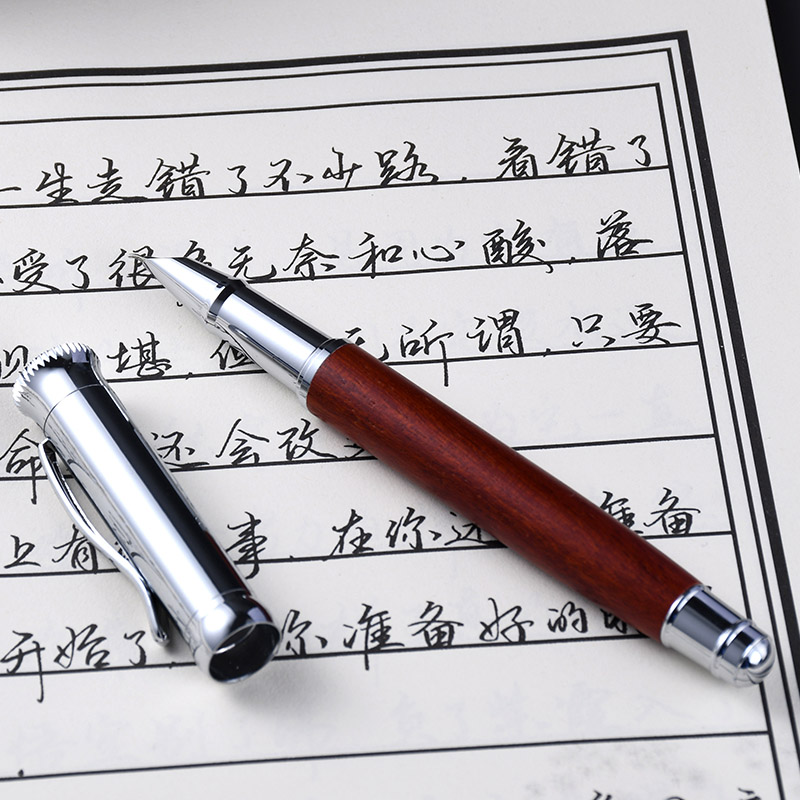 一生走错了不少路，看错了
受了很多无奈和心酸，落
堪，但 无所谓，只要
命 还会改
上有 事，在你还 准备
开始了，你准备好的时